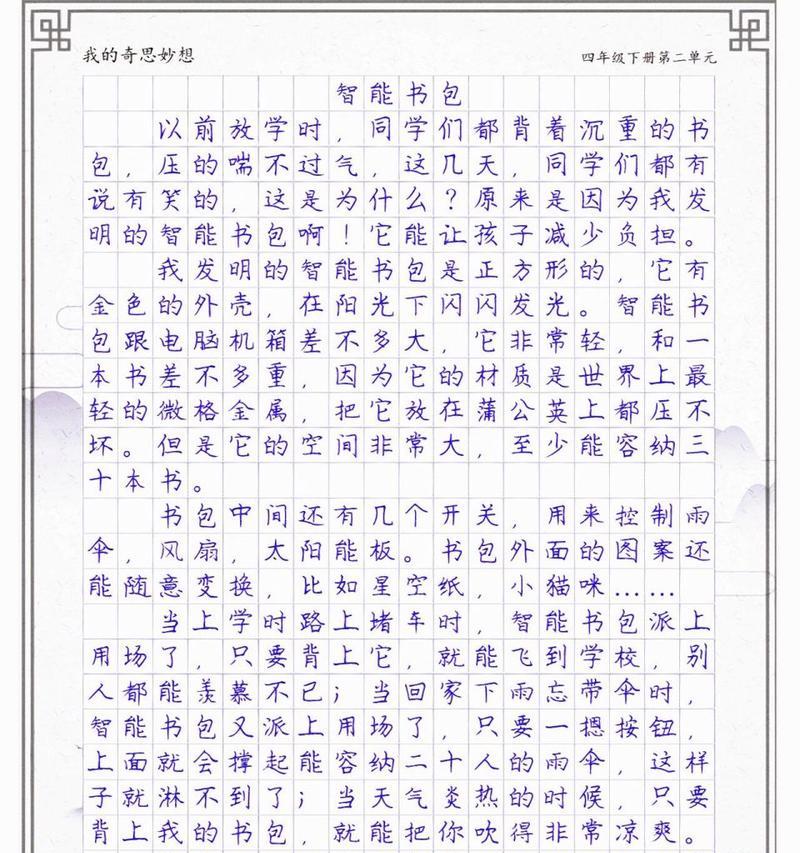 我的奇思妙想
四年级下册第二单元
智能书包
以前放学时，同学们都背着沉重的书
包，压的喘不过气，这几天，同学们都有
说有笑的，这是为什么？原来是因为我发
明的智能书包啊！它能让孩子减少负担。
我发明的智能书包是正方形的，它有
金色的外壳，在阳光下闪闪发光。智能书
包跟电脑机箱差不多大，它非常轻，和一
本书差不多重，因为它的材质是世界上最
轻的微格金属，把它放在蒲公英上都压不
坏。但是它的空间非常大，至少能容纳三
十本书。
书包中间还有几个开关，用来控制雨
伞，风扇，太阳能板。书包外面的图案还
能随意变换，比如星空纸，小猫咪……
当上学时路上堵车时，智能书包派上
用场了，只要背上它，就能飞到学校，别
人都能羡慕不已；当回家下雨忘带伞时，
智能书包又派上用场了，只要一摁按钮，
上面就会撑起能容纳二十人的雨伞，这样
子就淋不到了；当天气炎热的时候，只要
背上我的书包，就能把你吹得非常凉爽。